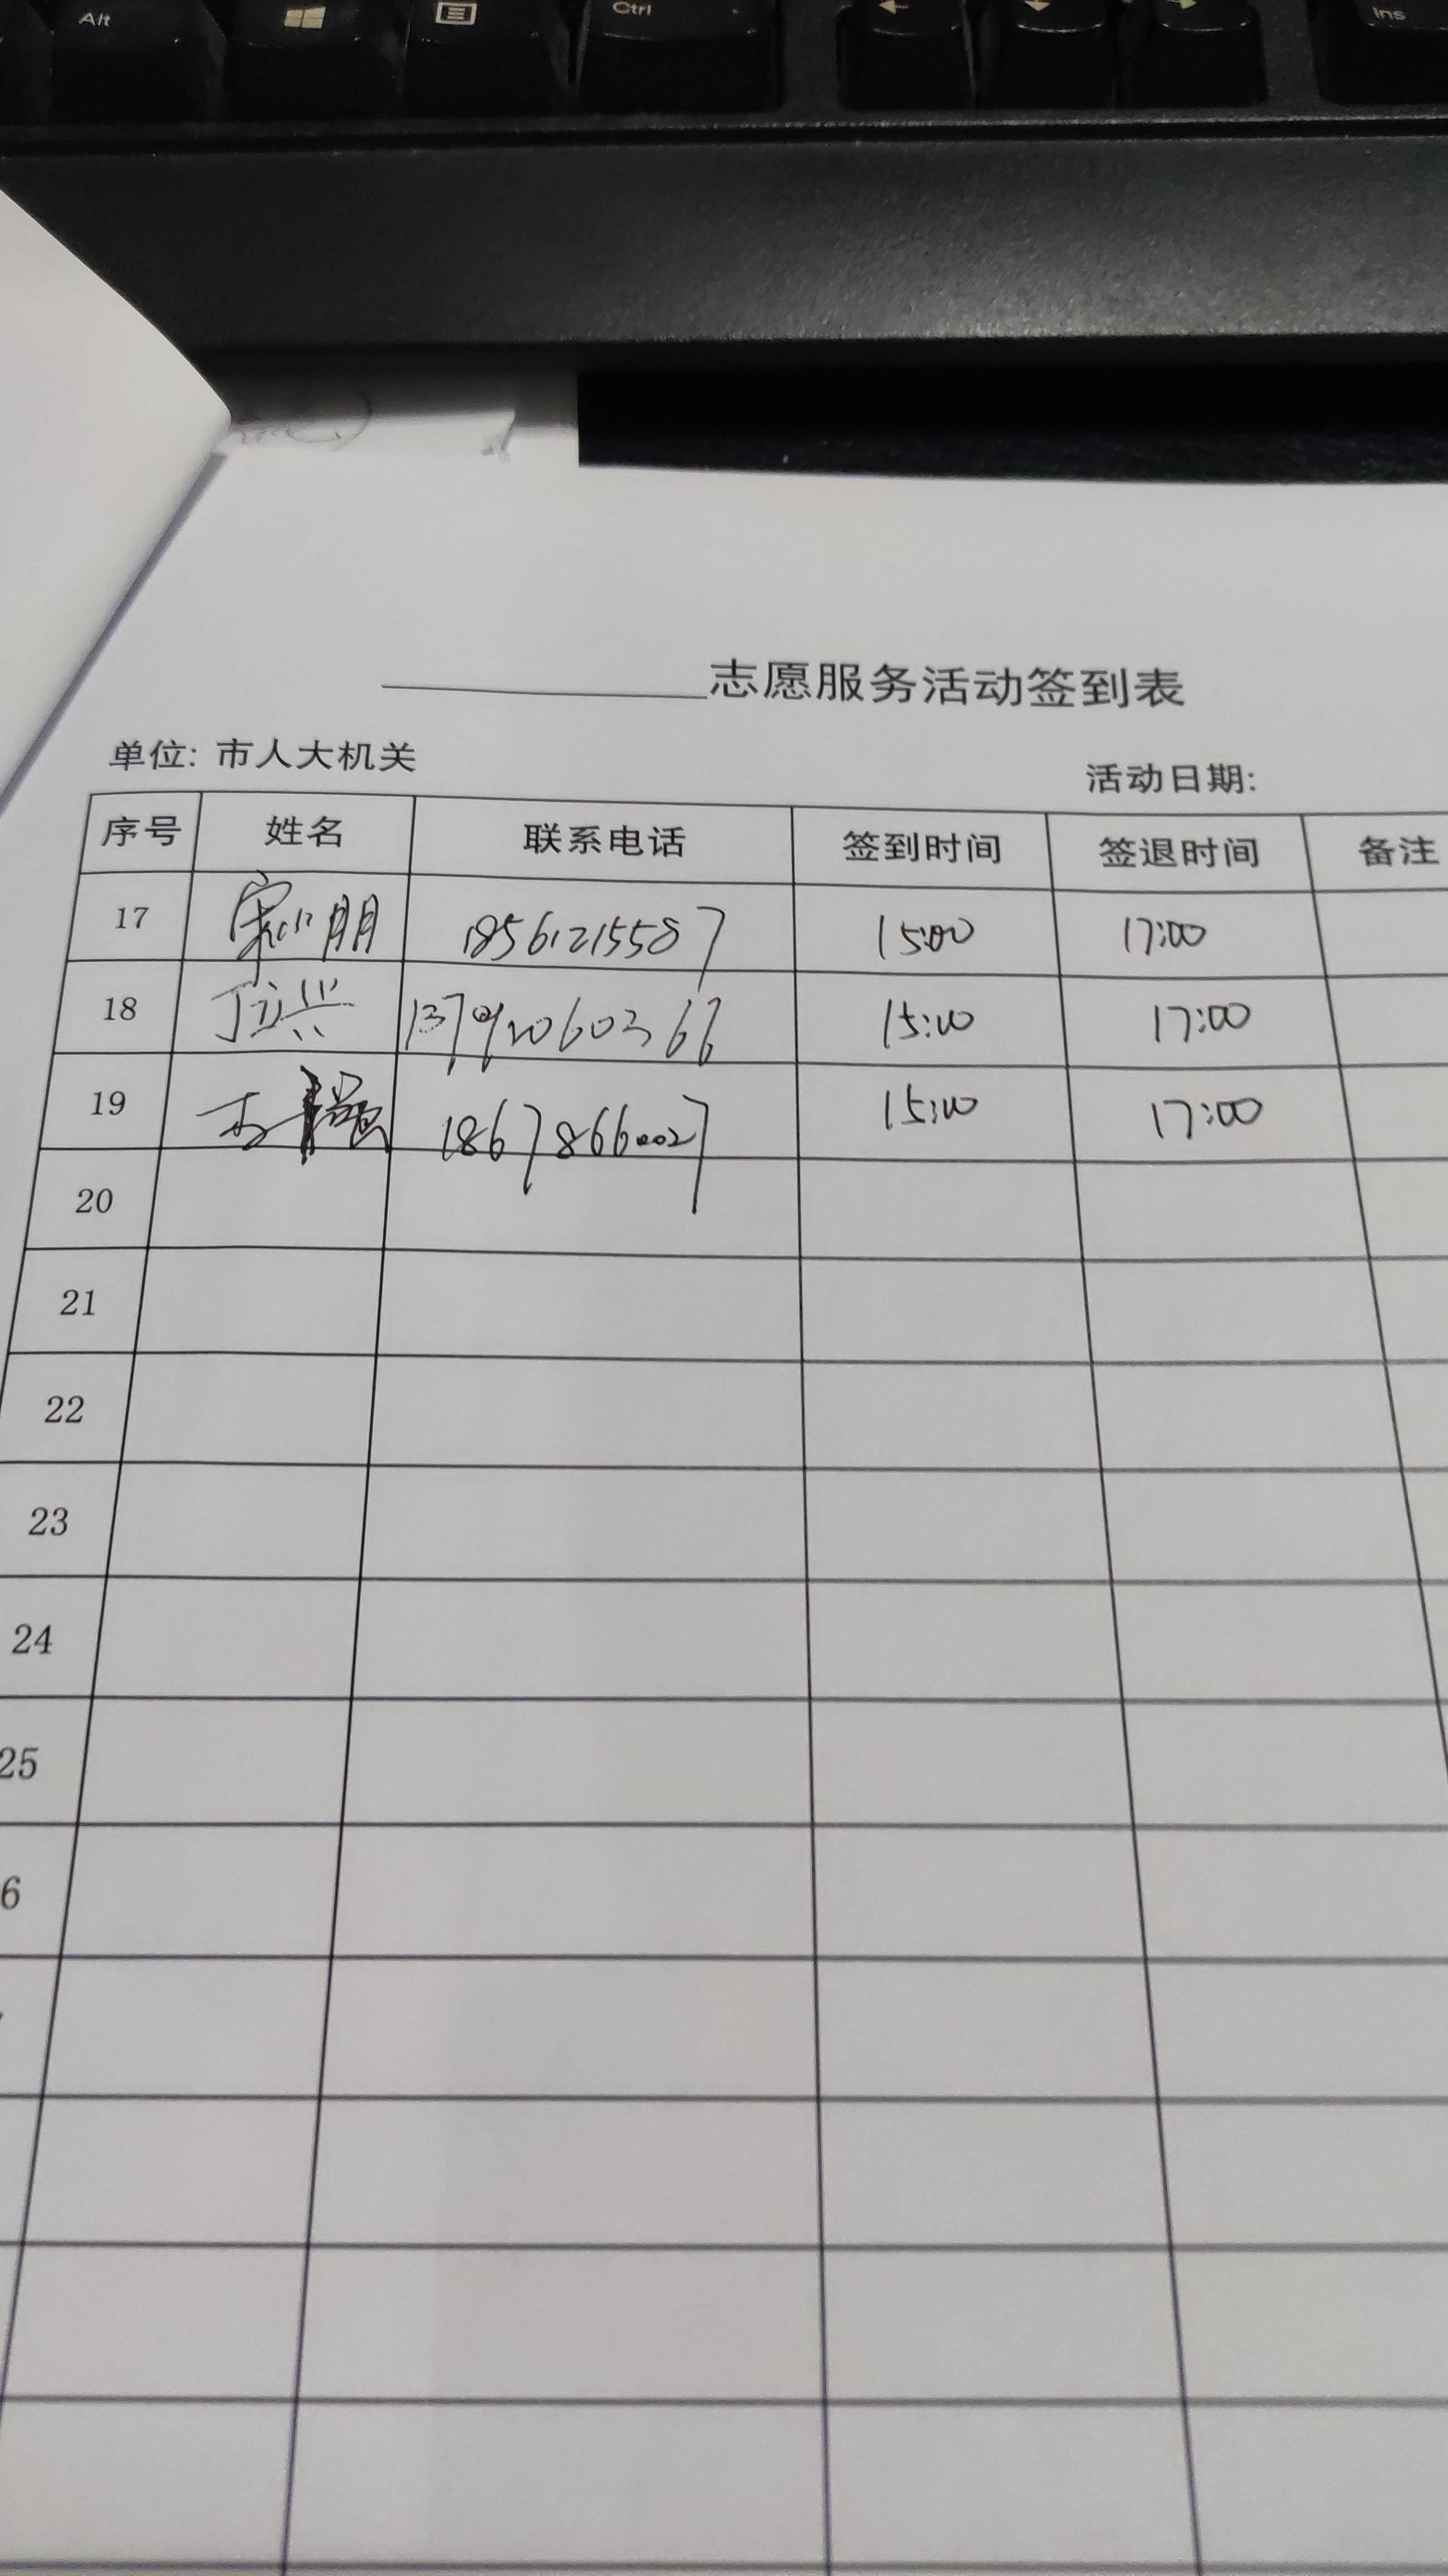 Alt
Ctrl
Ins
志愿服务活动签到表
单位: 市人大机关
活动日期:
序号 姓名 联系电话 签到时间 签退时间 备注
17 朋 18561215587 15:00 17:00
18 丁立兴 15:00 17:00
19 李 18678660027 15:00 17:00
20
21
22
23
24
25
6